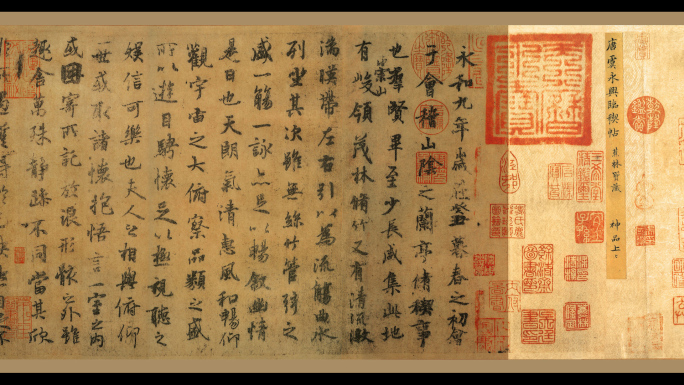 唐虞永興臨禊帖
神品上上
永和九年歲在癸丑暮春之初會
于會稽山陰之蘭亭脩稧事
也羣賢畢至少長咸集此地
有崇山峻領茂林脩竹又有清流激
湍暎帶左右引以為流觴曲水
列坐其次雖無絲竹管弦之
盛一觴一詠亦足以暢敘幽情
是日也天朗氣清惠風和暢仰
觀宇宙之大俯察品類之盛
所以遊目騁懷足以極視聽之
娛信可樂也夫人之相與俯仰
一世或取諸懷抱悟言一室之內
或因寄所託放浪形骸之外雖
趣舍萬殊靜躁不同當其欣